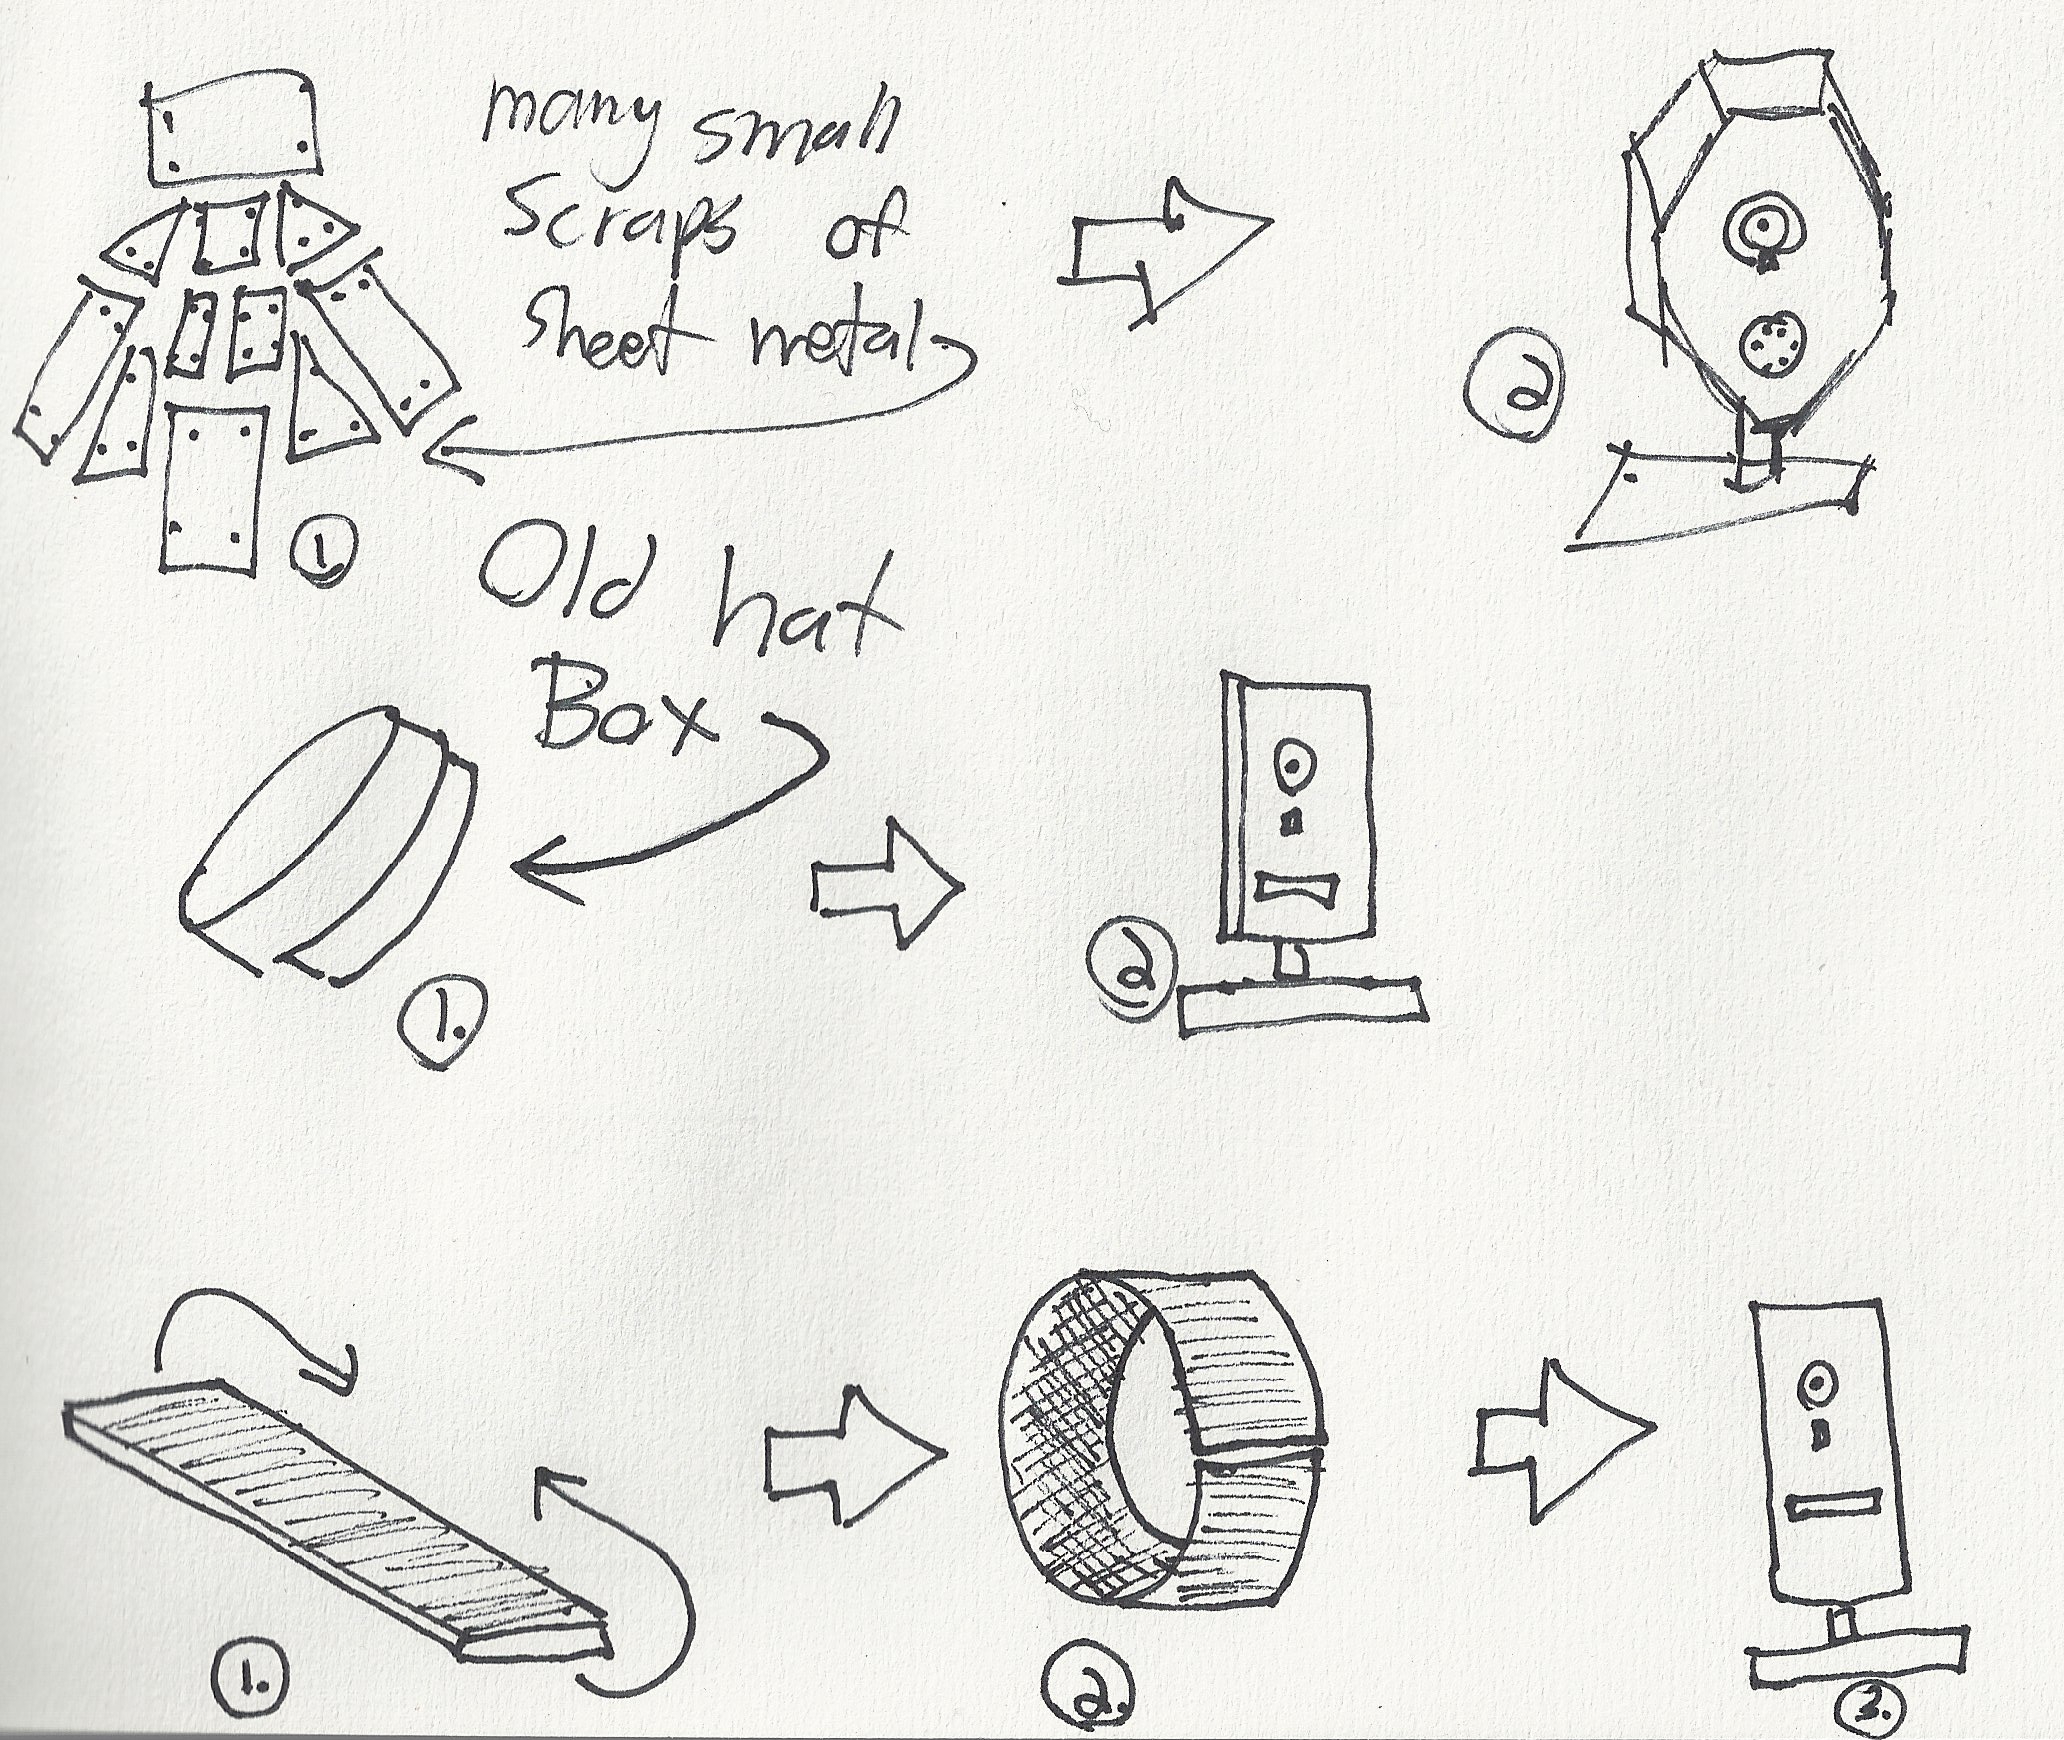 many small
scraps of
sheet metal
2
1.
Old hat
Box
1.
2
1.
2.
3.